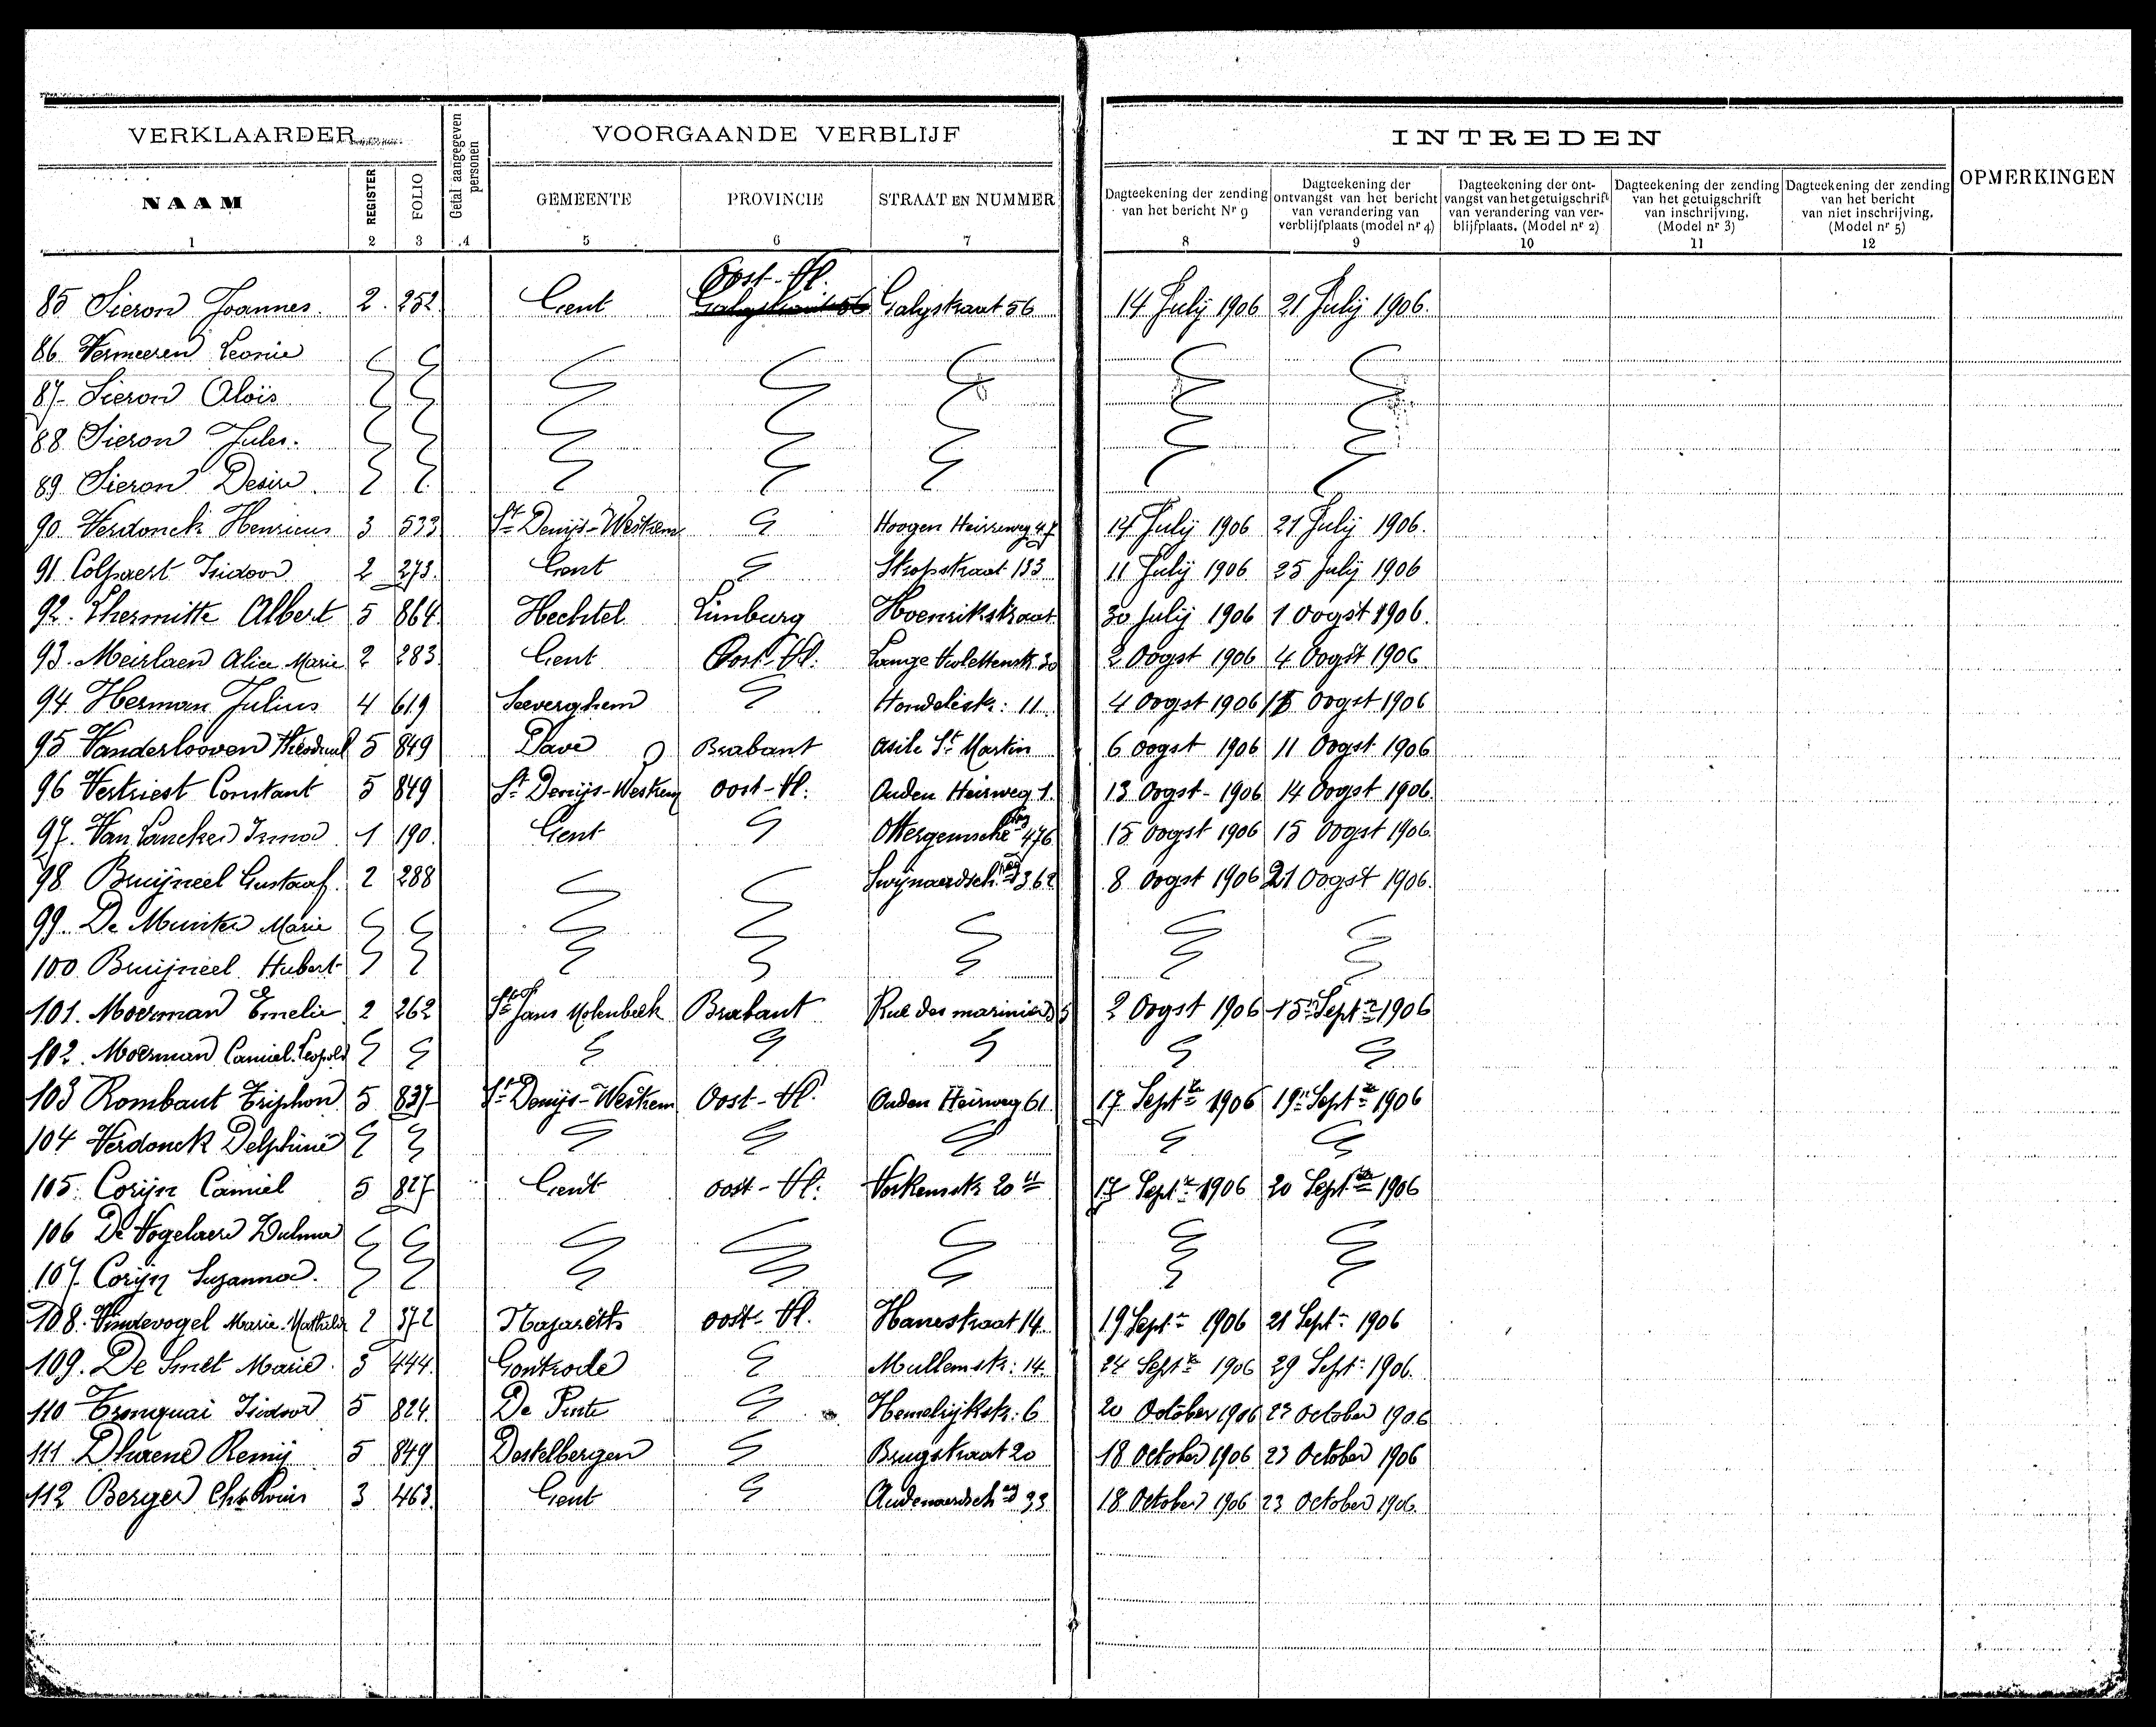 VERKLAARDER
Getal aangegeven personen
VOORGAANDE VERBLIJF
INTREDEN
OPMERKINGEN
NAAM
REGISTER
FOLIO
GEMEENTE
PROVINCIE
STRAAT EN NUMMER
Dagteekening der zending van het bericht Nr 9
Dagteekening der ontvangst van het bericht van verandering van verblijfplaats (model nr 4)
Dagteekening der ontvangst van het getuigschrift van verandering van verblijfplaats. (Model nr 2)
Dagteekening der zending van het getuigschrift van inschrijving. (Model nr 3)
Dagteekening der zending van het bericht van niet inschrijving. (Model nr 5)
1 2 3 4 5 6 7 8 9 10 11 12
Oost-Vl.
85 Sieron Joannes. 2. 252 Gent Galgstraat 56 14 July 1906 21 July 1906.
86 Vermeeren Leonie
87 Sieron Aloïs
88 Sieron Jules.
89 Sieron Desire
90 Verdonck Henricus 3 533 St Denijs-Westrem Hoogen Heirweg 47 14 July 1906 21 July 1906.
91 Colpaert Isidoor 2 273. Gent Stropstraat 133 11 July 1906 25 July 1906
92. Lhermitte Albert 5 864 Hechtel Limburg 30 July 1906 1 Oogst 1906.
93. Meirlaen Alice Marie 2 283 Gent Oost-Vl. Lange Violettenstr. 30 2 Oogst 1906 4 Oogst 1906
94 Herman Julius 4 619 Seeverghem 11. 4 Oogst 1906 Oogst 1906
95 Vanderlooven 5 849 Dave Brabant Asile St Martin 6 Oogst 1906 11 Oogst 1906
96 Vertriest Constant 5 849 St Denijs-Westrem Oost-Vl. Ouden Heirweg 1. 13 Oogst 1906 14 Oogst 1906.
97. Van Lancker Irma 1 190. Gent Ottergemsche stwg 476 15 Oogst 1906 15 Oogst 1906.
98 Bruijneel Gustaaf. 2 288 Swijnaardsch stwg 362 8 Oogst 1906 21 Oogst 1906.
99. De Munter Marie
100 Bruijneel Hubert
101. Moerman Emelie 2 262 St Jans Molenbeek Brabant Rue des mariniers 5 2 Oogst 1906 15 Sept 1906
102. Moerman Camiel Leopold
103 Rombaut Triphon 5 837 St Denijs-Westrem Oost-Vl. Ouden Heirweg 61 17 Sept 1906 19 Sept 1906
104 Verdonck Delphine
105. Corijn Camiel 5 827 Gent Oost-Vl. Voskenstr. 20 17 Sept 1906 20 Sept 1906
106 De Vogelaere Zulma
107. Corijn Suzanna.
108. Vindevogel Marie Mathilde 2 372 Nazareth Oost-Vl. Hanestraat 14. 19 Sept 1906 21 Sept 1906
109. De Smet Marie. 3 444. Gontrode Mullemstr: 14. 24 Sept 1906 29 Sept 1906.
110 Tronquai Isidoor 5 824. De Pinte Hemelrijkstr: 6 20 October 1906 23 October 1906
111 Dhaene Remij 5 849 Destelbergen Brugstraat 20 18 October 1906 23 October 1906
112 Berger Chs Louis 3 463. Gent Audenaardsch stwg 33 18 October 1906 23 October 1906.